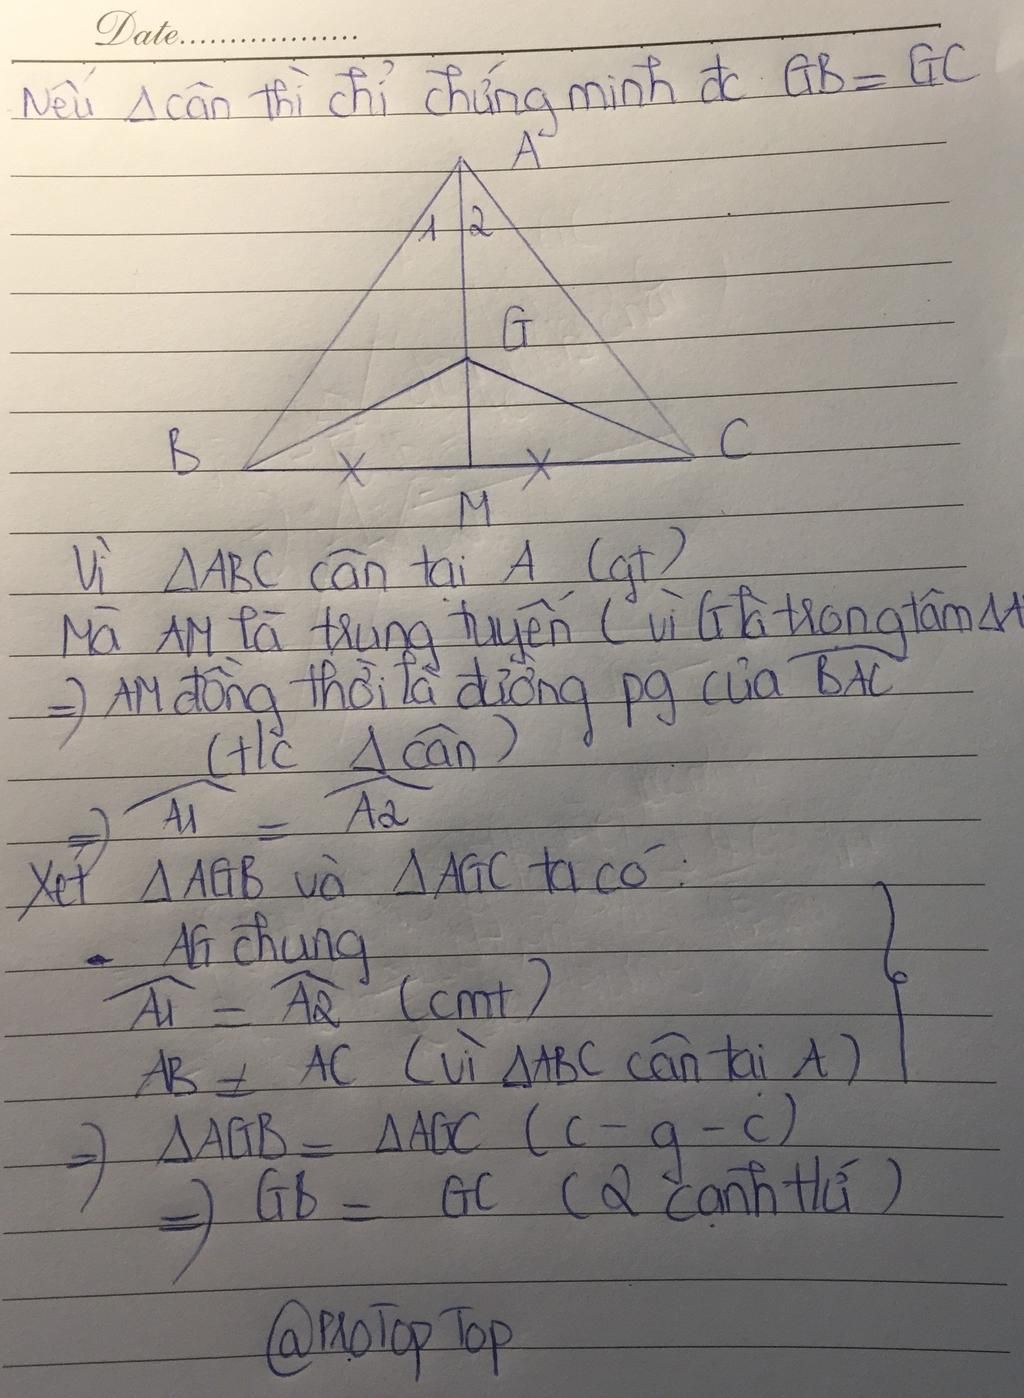 Date..................
Nếu Δ cân thì chỉ chứng minh đc GB = GC
A
1 2
G
B C
M
Vì ΔABC cân tại A (gt)
Mà AM là trung tuyến (vì G là trọng tâm ΔA
=) AM đồng thời là đường pg của BAC
(t/c Δ cân)
=) A1 = A2
Xét ΔAGB và ΔAGC ta có:
- AG chung
A1 = A2 (cmt)
AB = AC (vì ΔABC cân tại A)
=) ΔAGB = ΔAGC (c-g-c)
=) GB = GC (2 cạnh tứ)
@PROTOPTOP